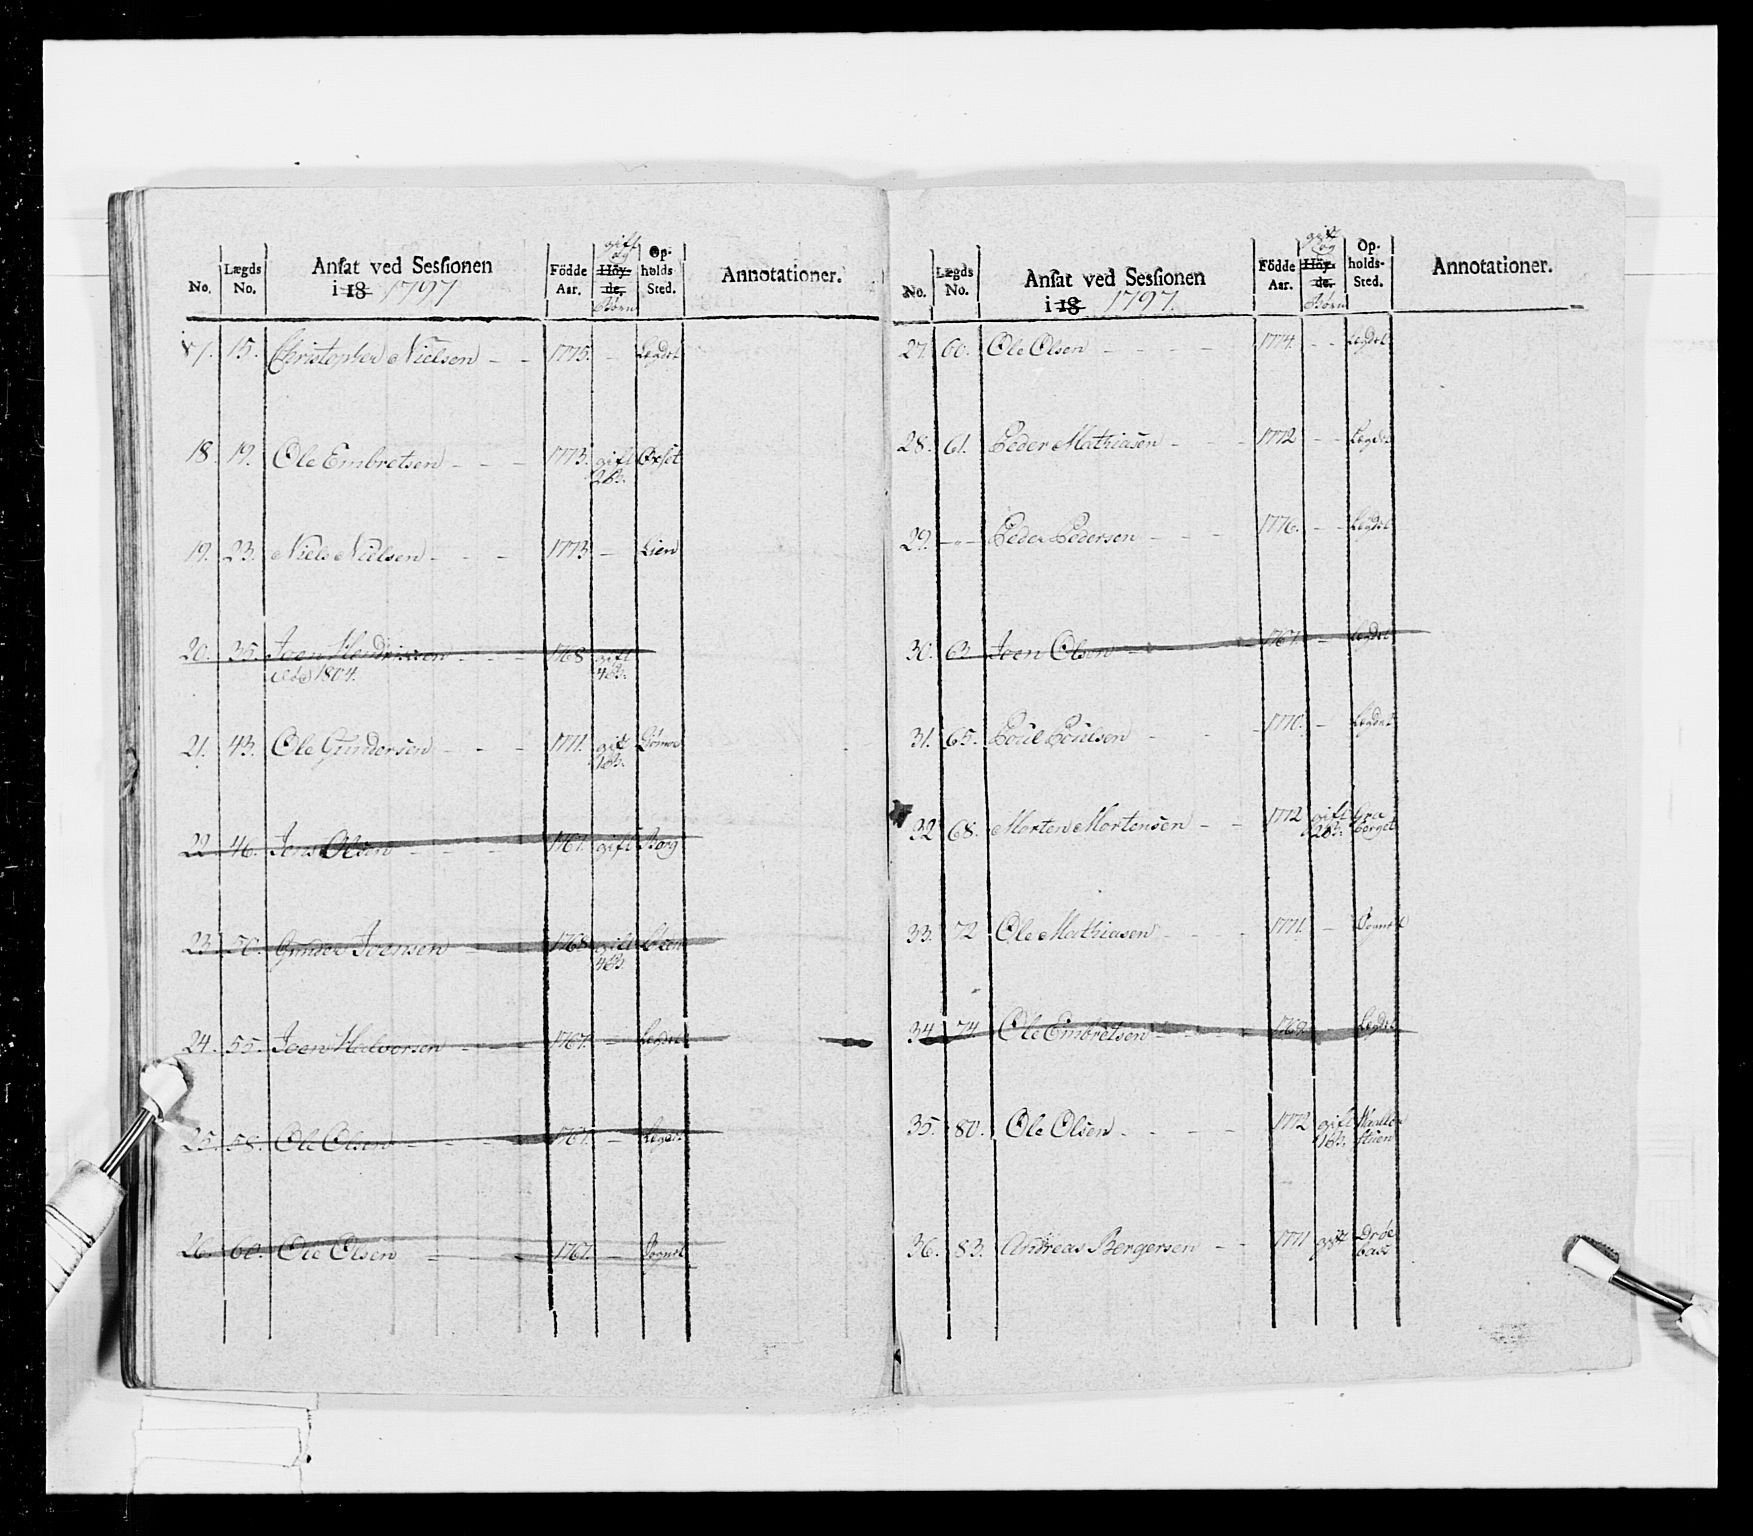 No. Lægds No. Ansat ved Sessionen i 18 1797 Födde Aar. gift og Höyde. Børn Opholds Sted. Annotationer.
15. Christopher Nielsen - - 1775. - Legdet
18. 19. Ole Embretsen - - - 1773. gift
2 b.
19. 23. Niels Nielsen - - - 1773 - Lien
20. 35. Joen Hendrichsen - - - 1768 gift
1804. 4 b.
21. 43. Ole Gundersen - - - 1771. gift
1 b.
22. 46. Jens Olsen - - - 1767. gift Borg
23. 50. Gunder Joensen - - 1768 gift
4 b.
24. 55. Joen Halvorsen - - 1767. - Legdet
25. 58. Ole Olsen - - - 1767. - Legdet
26. 60. Ole Olsen - - 1767. - Sognet
No. Lægds No. Ansat ved Sessionen i 18 1797. Födde Aar. gift og Höyde. Børn Opholds Sted. Annotationer.
27. 60. Ole Olsen - - - - 1774. - - Legdet
28. 61. Peder Mathiasen - - - 1772 - - Legdet
29. -"- Peder Pedersen - - - 1776. - - Legdet
30. 63. Joen Olsen - - - 1767. - Legdet
31. 65. Poul Poulsen - - - 1770. - Legdet
32 68. Morten Mortensen - - 1772 gift
2 b. berget
33. 72 Ole Mathiasen - - - 1771. - Sognet
34 74. Ole Embretsen - - - 1762 Legdet
35. 80. Ole Olsen - - - - 1772 gift
1 b. stuen
36. 83. Andreas Bergersen - - 1771 gift Drøe
bak